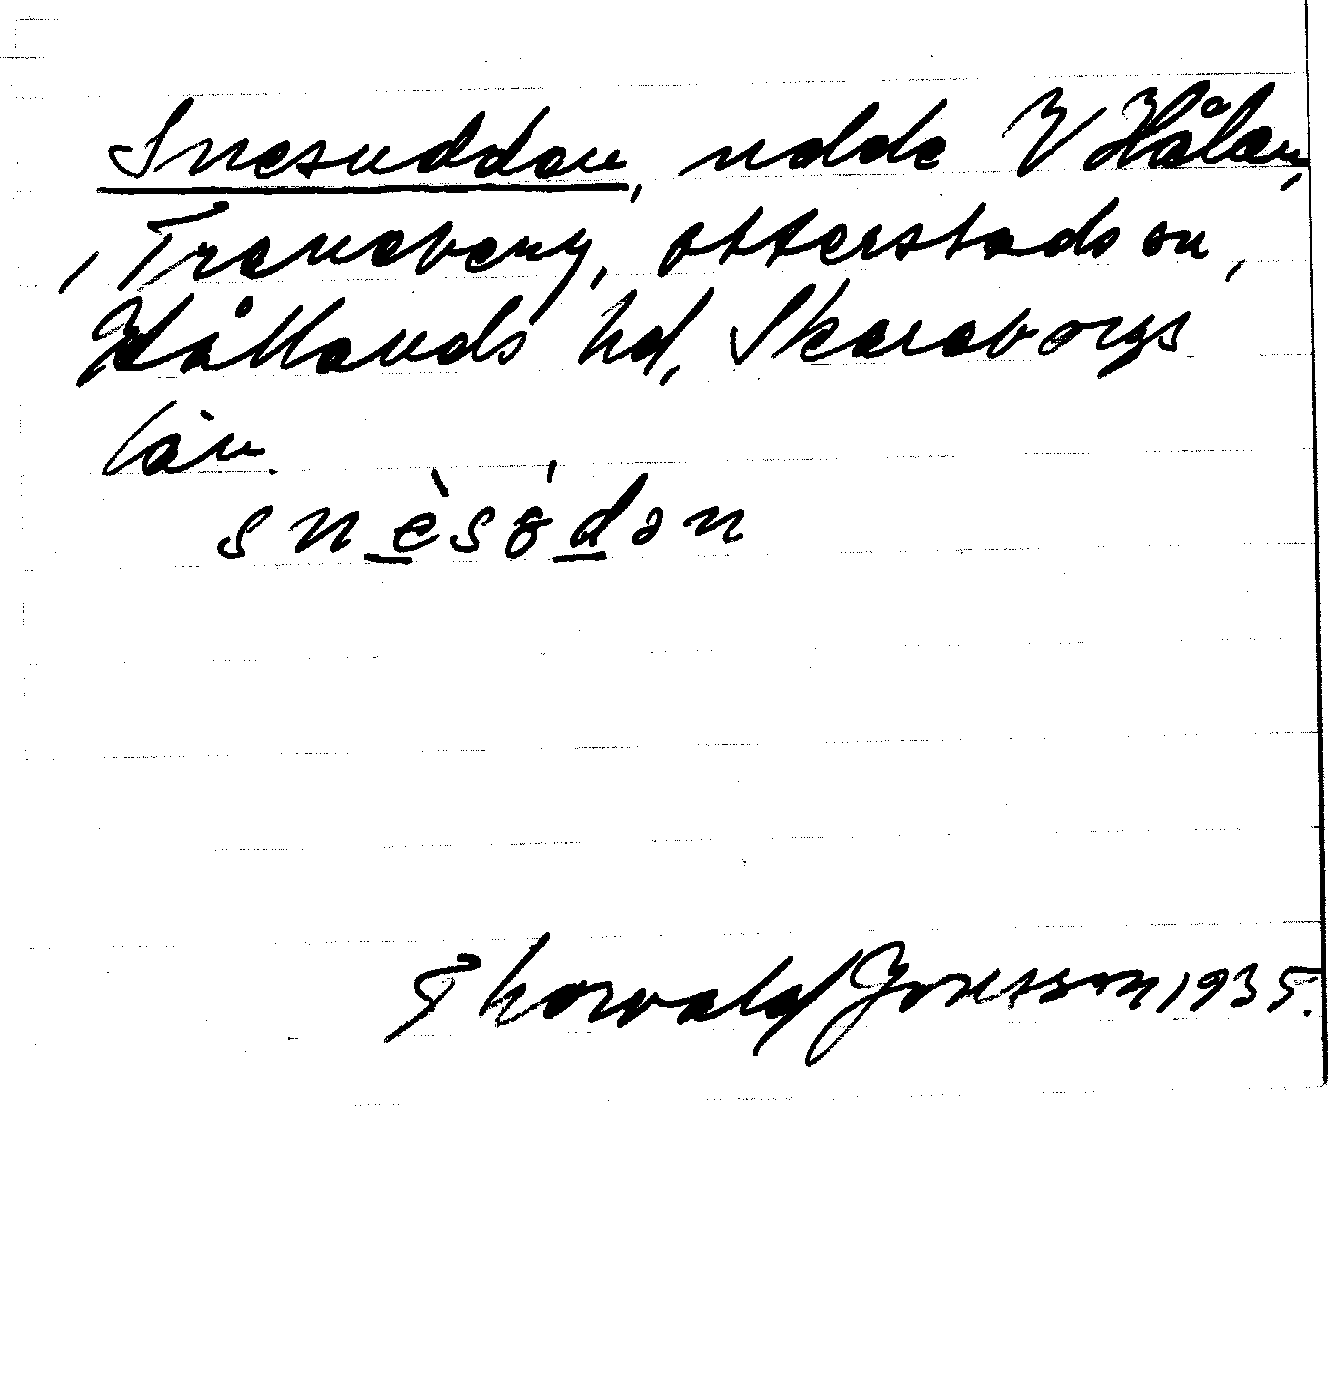 Snesudden, udde V Hålan,
, Traneberg, Otterstads sn,
Kållands hd, Skaraborgs
län.
snèsödən
Thorwald Jonsson 1935.